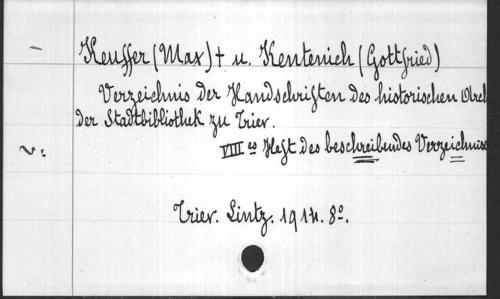 Keuffer (Max) † u. Kentenich (Gottfried)
Verzeichnis der Handschriften des historischen
der Stadtbibliothek zu Trier.
VIII es Heft des beschreibendes Verzeichniss
Trier. Lintz. 1914. 8º.